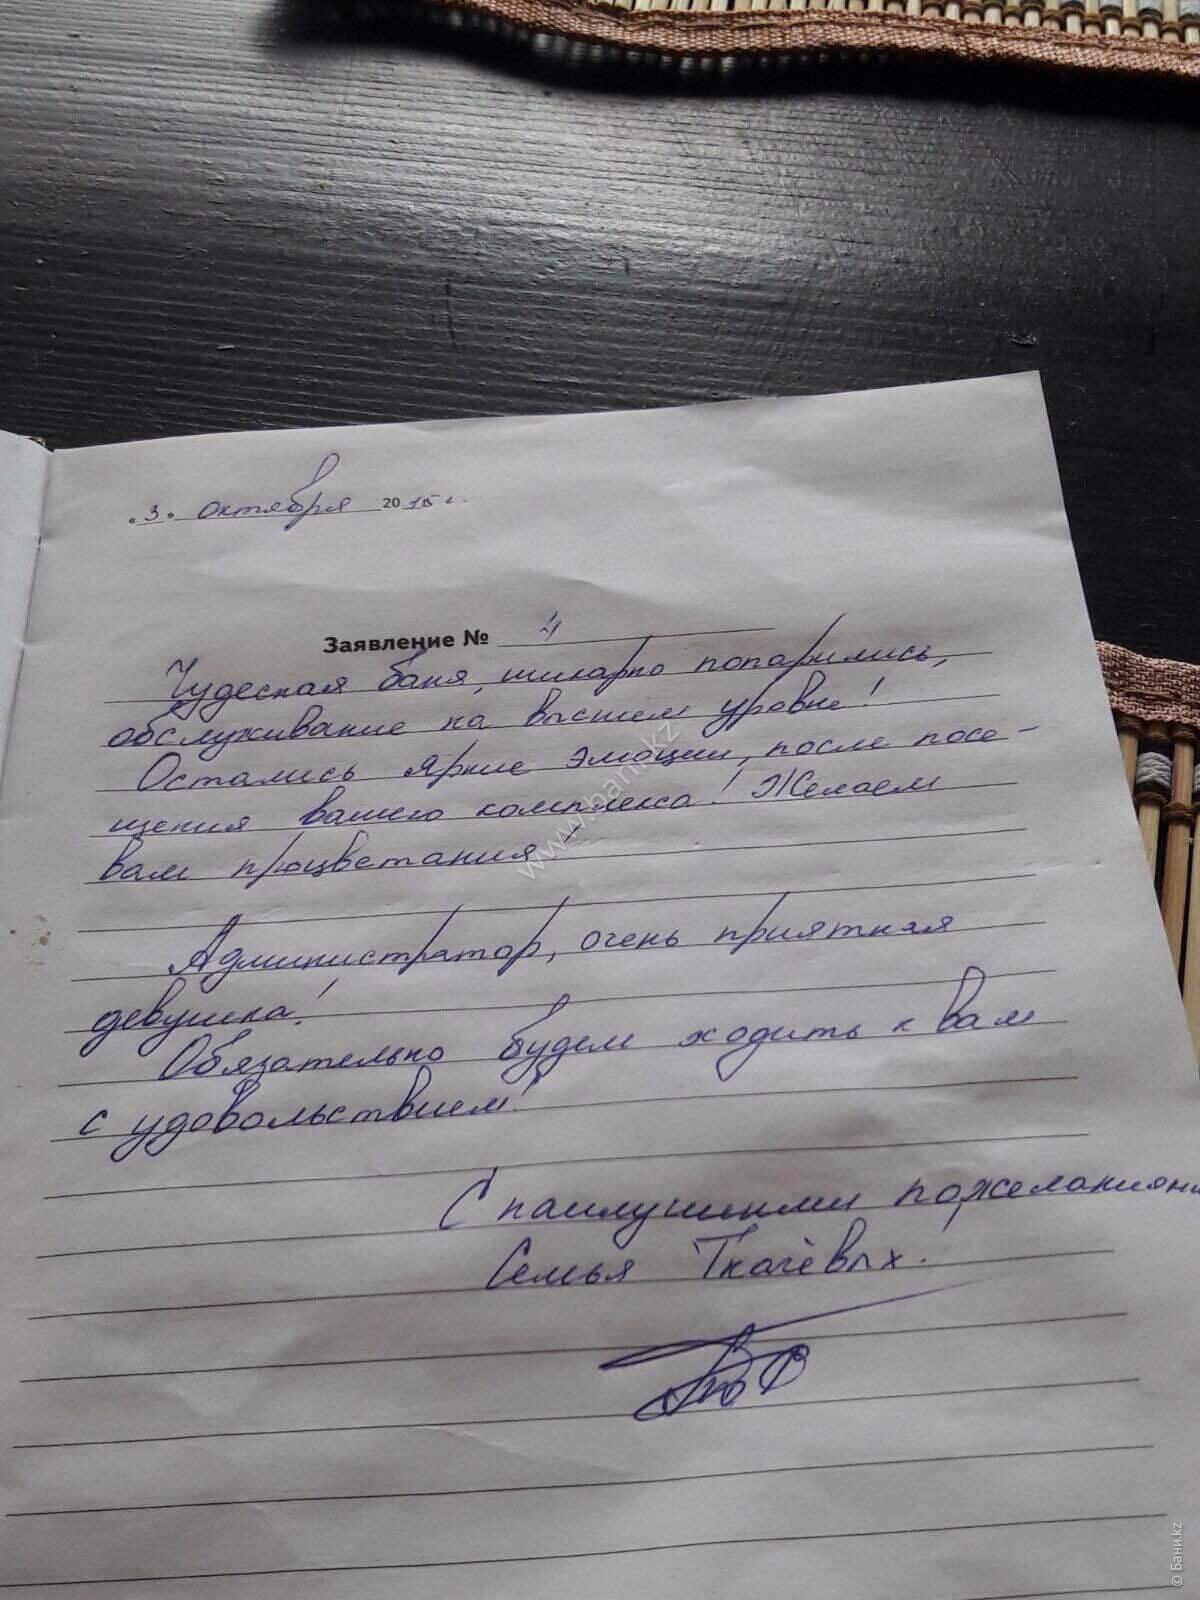 «3» октября 2015 г.
Заявление № 4
Чудесная баня, шикарно попарились,
обслуживание на высшем уровне!
Остались яркие эмоции, после посе-
щения вашего комплекса! Желаем
вам процветания
Администратор, очень приятная
девушка!
Обязательно будем ходить к вам
с удовольствием!
С наилучшими пожеланиями
Семья Ткачёвых.
www.bani.kz
© Бани.kz